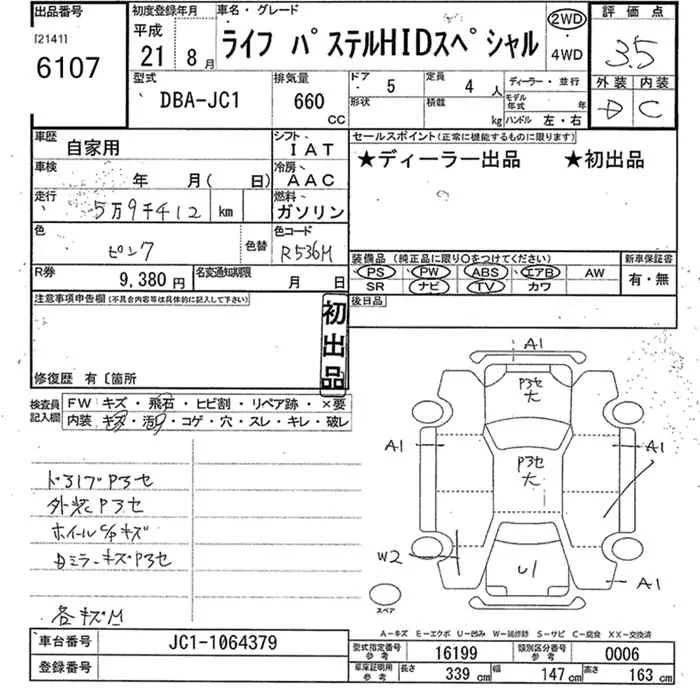 出品番号 初度登録年月 車名・グレード 評価点
[2141] 6107 平成 21年 8月 ライフ パステルHIDスペシャル 2WD ・ 4WD 3.5
外装 内装
D C
型式 DBA-JC1 排気量 660 CC ドア 5 定員 4人 ディーラー・並行
形状 積載 kg モデル年式 年 ハンドル 左・右
車歴 自家用 シフト IAT セールスポイント(正常に機能するものに限ります)
★ディーラー出品 ★初出品
車検 年 月( 日) 冷房 AAC
走行 5万9千412 km 燃料 ガソリン
色 ピンク 色替 色コード R536M
装備品 (純正品に限り○をつけてください) 新車保証書
PS ・ PW ・ ABS ・ エアB ・ AW 有・無
SR ナビ TV カワ
R券 9,380円 名変通知期限 月 日
後日品
注意事項申告欄(不具合内容等は具体的に記入して下さい) 初出品
修復歴 有〔箇所
検査員記入欄 FW キズ・飛石・ヒビ割・リペア跡・×要
内装 キズ・汚れ・コゲ・穴・スレ・キレ・破レ
外装P3セ
ホイールC/Pキズ
DミラーキズP3セ
各キズM
A1
P3セ 大
A1 A1
P3セ 大
W2 U1 A1
スペア
A-キズ E-エクボ U-凹み W-補修跡 S-サビ C-腐食 XX-交換済
車台番号 JC1-1064379
登録番号
型式指定番号 参考 16199 類別区分番号 参考 0006
車庫証明用 参考 長さ 339 cm 幅 147 cm 高さ 163 cm